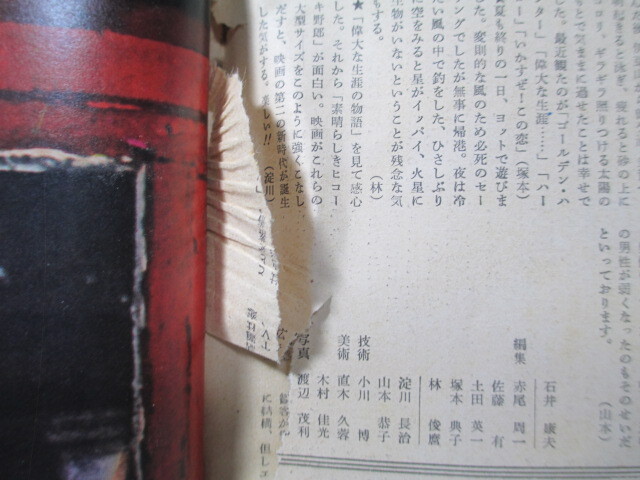 の男性が弱くなったのもそのせいだ
といっております。
（山本）
コロリ、ギラギラ照りつける太陽の
もとで気ままに過せたことは幸せで
した。最近観たのが「ゴールデン・ハ
ンター」「偉大な生涯……」「ハー
「いかすぜ！この恋」（塚本）
真夏も終りの一日、ヨットで遊びま
した。変則的な風のため必死のセー
リングでしたが無事に帰港。夜は冷
たい風の中で釣をした、ひさしぶり
に空をみると星がイッパイ、火星に
生物がいないということが残念な気
もする。
（林）
★「偉大な生涯の物語」を見て感心
した。それから「素晴らしきヒコー
キ野郎」が面白い。映画がこれらの
大型サイズをこのように強くこなし
だすと、映画の第二の新時代が誕生
した気がする。楽しい!!
（淀川）
石井 康夫
編集 赤尾 周一
佐藤 有
土田 英一
塚本 典子
林 俊鷹
淀川 長治
山本 恭子
技術 小川 博
美術 直木 久蓉
木村 佳光
写真 渡辺 茂利
に結構、但し